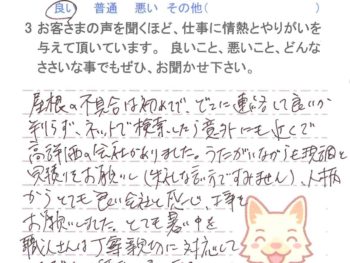 良い 普通 悪い その他(
3 お客さまの声を聞くほど、仕事に情熱とやりがいを
与えて頂いています。 良いこと、悪いこと、どんな
ささいな事でもぜひ、お聞かせ下さい。
屋根の不具合は初めてで、どこに連絡して良いか
判らず、ネットで検索したら意外にも近くで
高評価の会社がありました。うたがいながらも現調と
見積りをお願いし(失礼な言い方ですみません)、人柄
からとても良い会社と感じ、工事を
お願いしました。とても暑い中を
職人さんは丁寧親切に対応して